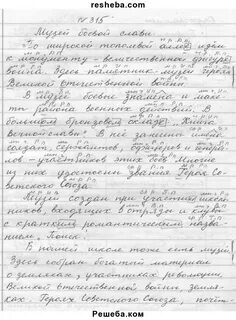 resheba.com
№ 315
Музей боевой славы.
По широкой тополевой аллее идём
к монументу - величественной фигуре
воина. Здесь памятник-музей героям
Великой Отечественной войны.
В музее боевые знамёна и макеты
района военных действий. В
большом бронзовом окладе „Книга
Вечной славы". В неё занесены имена
солдат, сержантов, офицеров и генералов
- участников этих боёв. Многие
из них удостоены звания Героя Советского
Союза
Музей создан при участии школьников,
входящих в отряды и клубы
с кратким романтическим названием
„Поиск"
В нашей школе тоже есть музей.
Здесь собран богатый материал
о земляках, участниках революции,
Великой Отечественной войны, земляках,
Героях Советского Союза, почёт-
Решеба.com